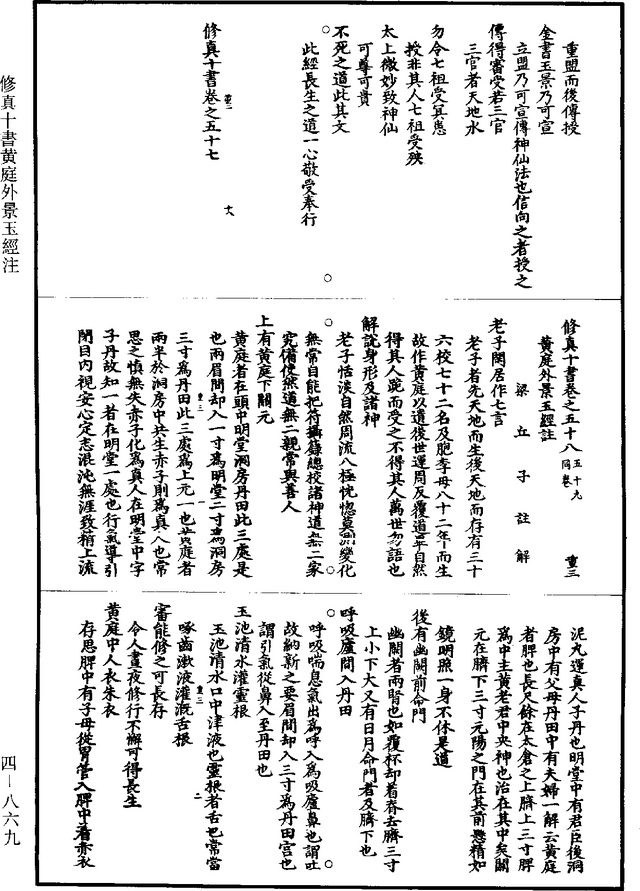 修真十書黄庭外景玉經注
四－八六九
重盟而後傳授
金書玉景乃可宣
立盟乃可宣傳神仙法也信向之者授之
傳得審受若三官
三官者天地水
勿令七祖受冥患
授非其人七祖受殃
太上微妙致神仙
可尊可貴
不死之道此其文
此經長生之道一心敬受奉行
修真十書卷之五十七
修真十書卷之五十八 五十九同卷 重三
黄庭外景玉經註
梁丘子註解
老子閑居作七言
老子者先天地而生後天地而存有三十
六校七十二名及胞李母八十二年而生
故作黄庭以遺後世運周反覆道畢自然
得其人跪而受之不得其人萬世勿語也
解說身形及諸神
老子恬淡自然周流八極恍惚莫測變化
無常自能把符攝籙總校諸神道無二家
究備使然道無二親常與善人
上有黄庭下關元
黄庭者在頭中明堂洞房丹田此三處是
也兩眉間却入一寸爲明堂二寸爲洞房
三寸爲丹田此三處爲上元一也黄庭者
兩半於洞房中共生赤子則爲真人也常
思之慎無失赤子化爲真人在明堂中字
子丹故知一者在明堂一處也行氣導引
閉目內視安心定志混沌無涯致精上流
泥丸運真人子丹也明堂中有君臣後洞
房中有父母丹田中有夫婦一解云黄庭
者脾也長尺餘在太倉之上臍上三寸脾
爲中主黄老君中央神也治在其中矣關
元在臍下三寸元陽之門在其前懸精如
鏡明照一身不休是道
後有幽闕前命門
幽闕者兩腎也如覆杯却着脊去臍三寸
上小下大又有日月命門者及臍下也
呼吸廬間入丹田
呼吸喘息氣出爲呼入爲吸廬鼻也謂吐
故納新之要眉間却入三寸爲丹田宫也
謂引氣從鼻入至丹田也
玉池清水灌靈根
玉池清水口中津液也靈根者舌也常當
啄齒漱液灌溉舌根
審能修之可長存
令人晝夜修行不懈可得長生
黄庭中人衣朱衣
存思脾中有子母從胃管入脾中着赤衣